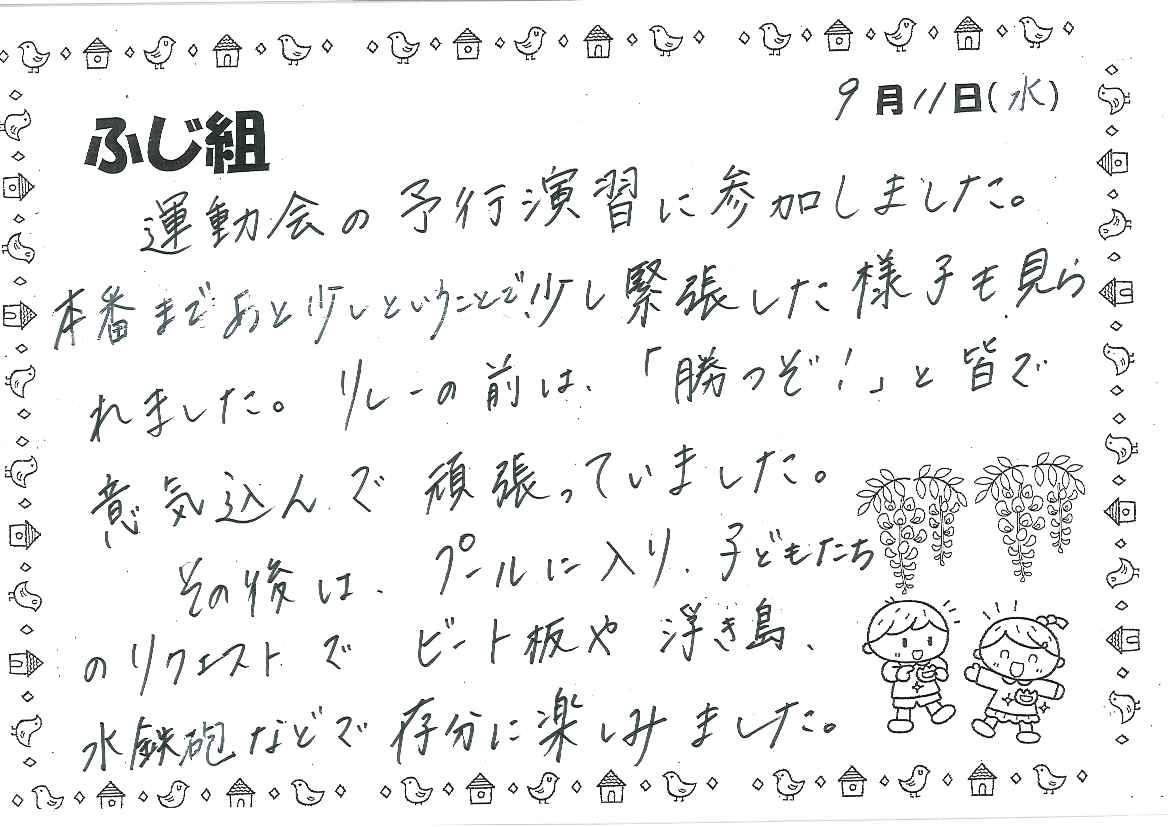 9月11日(水)
ふじ組
運動会の予行演習に参加しました。
本番まであと少しということで、少し緊張した様子も見ら
れました。リレーの前は、「勝つぞ!」と皆で
意気込んで頑張っていました。
その後は、プールに入り、子どもたち
のリクエストでビート板や浮き島、
水鉄砲などで存分に楽しみました。